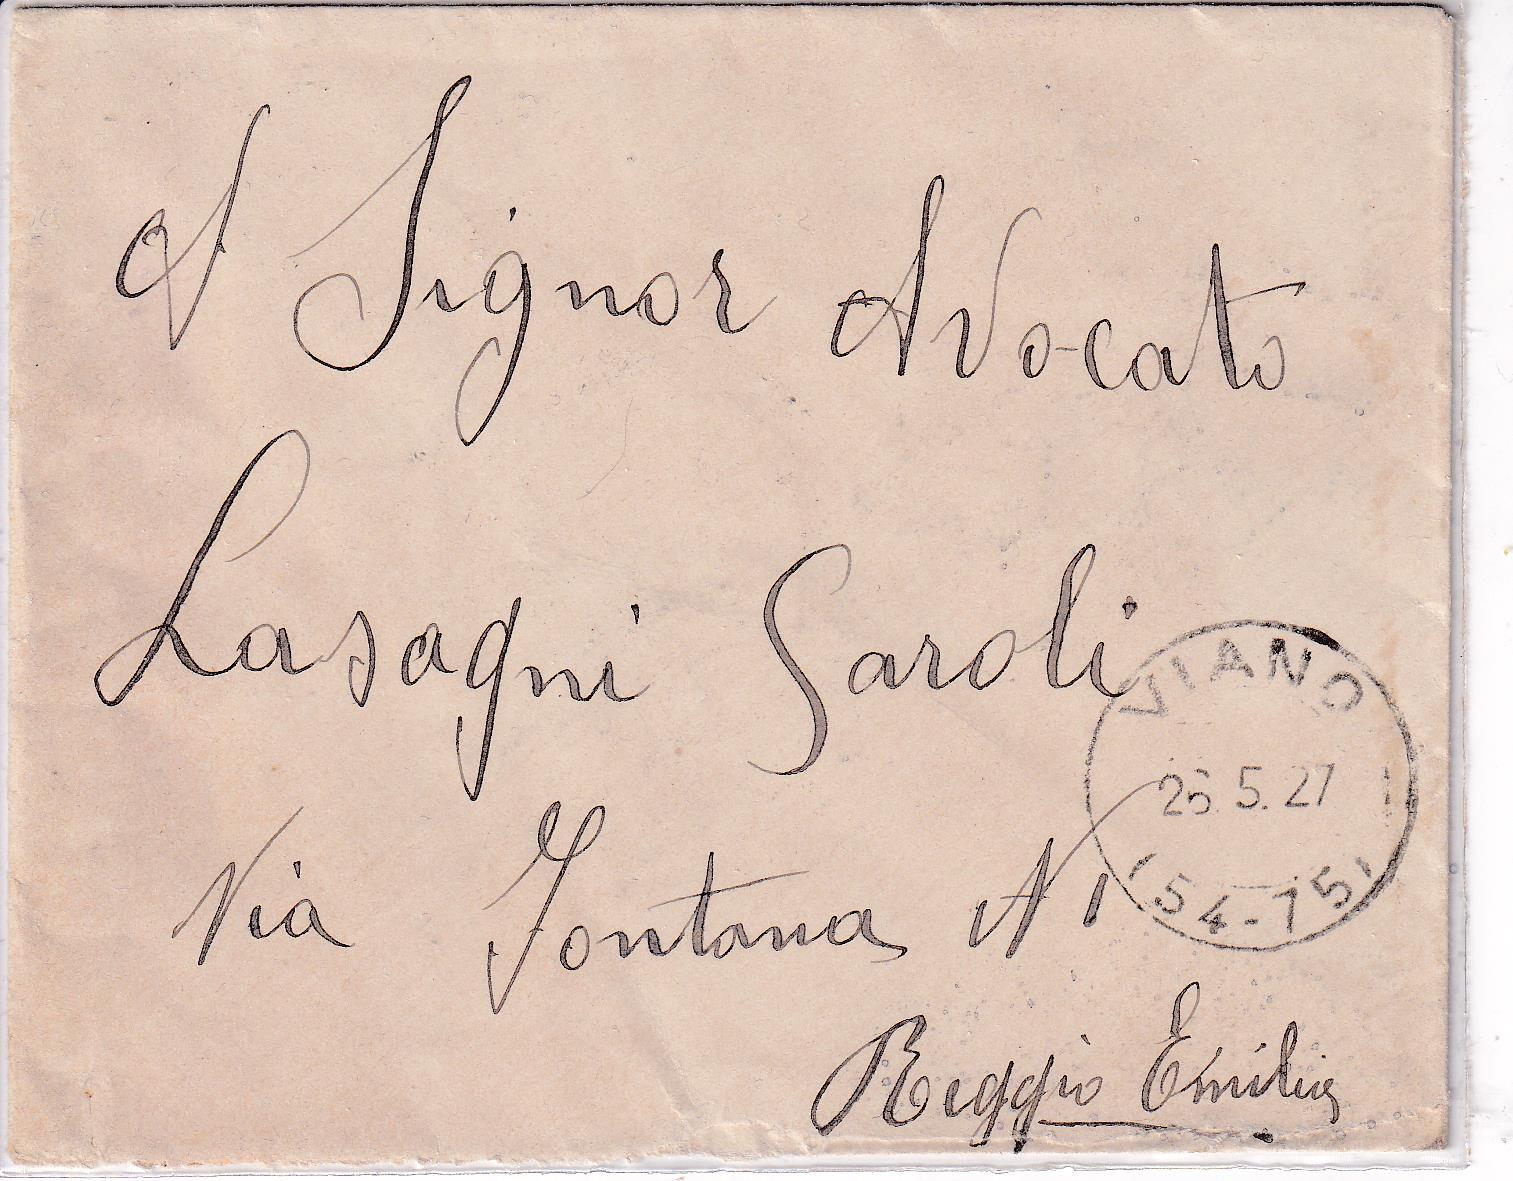 Al Signor Avvocato
Lasagni Saroli
Via Fontana N 1
Reggio Emilia
VIANO
26.5.27
(54-75)